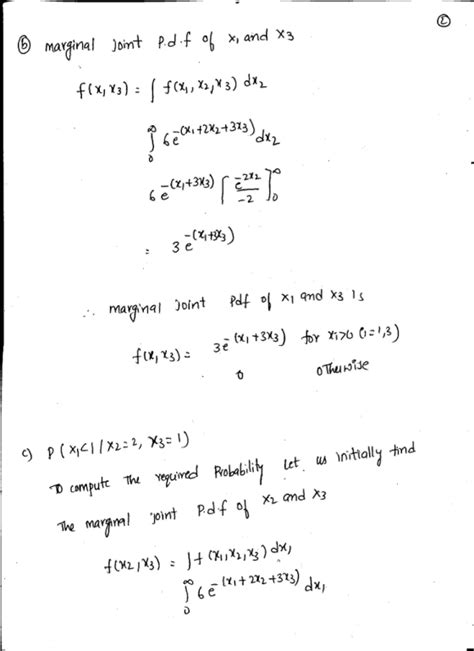 ②
ⓑ marginal Joint P.d.f of x₁ and x3
f(x₁ x₃) = ∫ f(x₁, x₂, x₃) dx₂
∞∫0 6e^-(x₁+2x₂+3x₃) dx₂
6e^-(x₁+3x₃) [e^-2x₂/-2]∞0
= 3e^-(x₁+3x₃)
∴ marginal Joint Pdf of x₁ and x3 is
f(x₁ x₃) = 3e^-(x₁+3x₃) for xi>0 (i=1,3)
0 otherwise
c) P(x₁<1 / x₂=2, x₃=1)
To compute The required Probability Let us initially find
The marginal joint P.d.f of x₂ and x3
f(x₂, x₃) = ∫f(x₁, x₂, x₃) dx₁
∞∫0 6e^-(x₁+2x₂+3x₃) dx₁